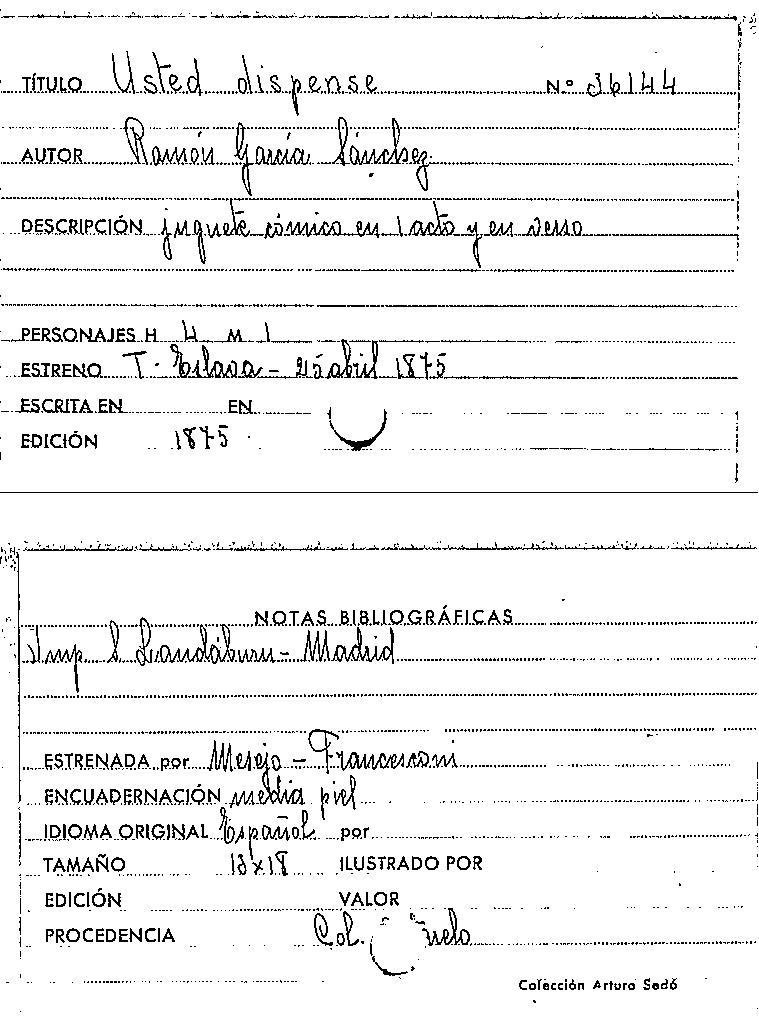 TÍTULO Usted dispense N.º 36144
AUTOR Ramón García Sánchez
DESCRIPCIÓN juguete cómico en 1 acto y en verso
PERSONAJES H 4 M 1
ESTRENO T. Eslava - 25 abril 1875
ESCRITA EN EN
EDICIÓN 1875
NOTAS BIBLIOGRÁFICAS
Imp S Landáburu - Madrid
ESTRENADA por Mesejo - Francesconi
ENCUADERNACIÓN media piel
IDIOMA ORIGINAL Español por
TAMAÑO 13x18 ILUSTRADO POR
EDICIÓN VALOR
PROCEDENCIA Col.
Colección Arturo Sedó